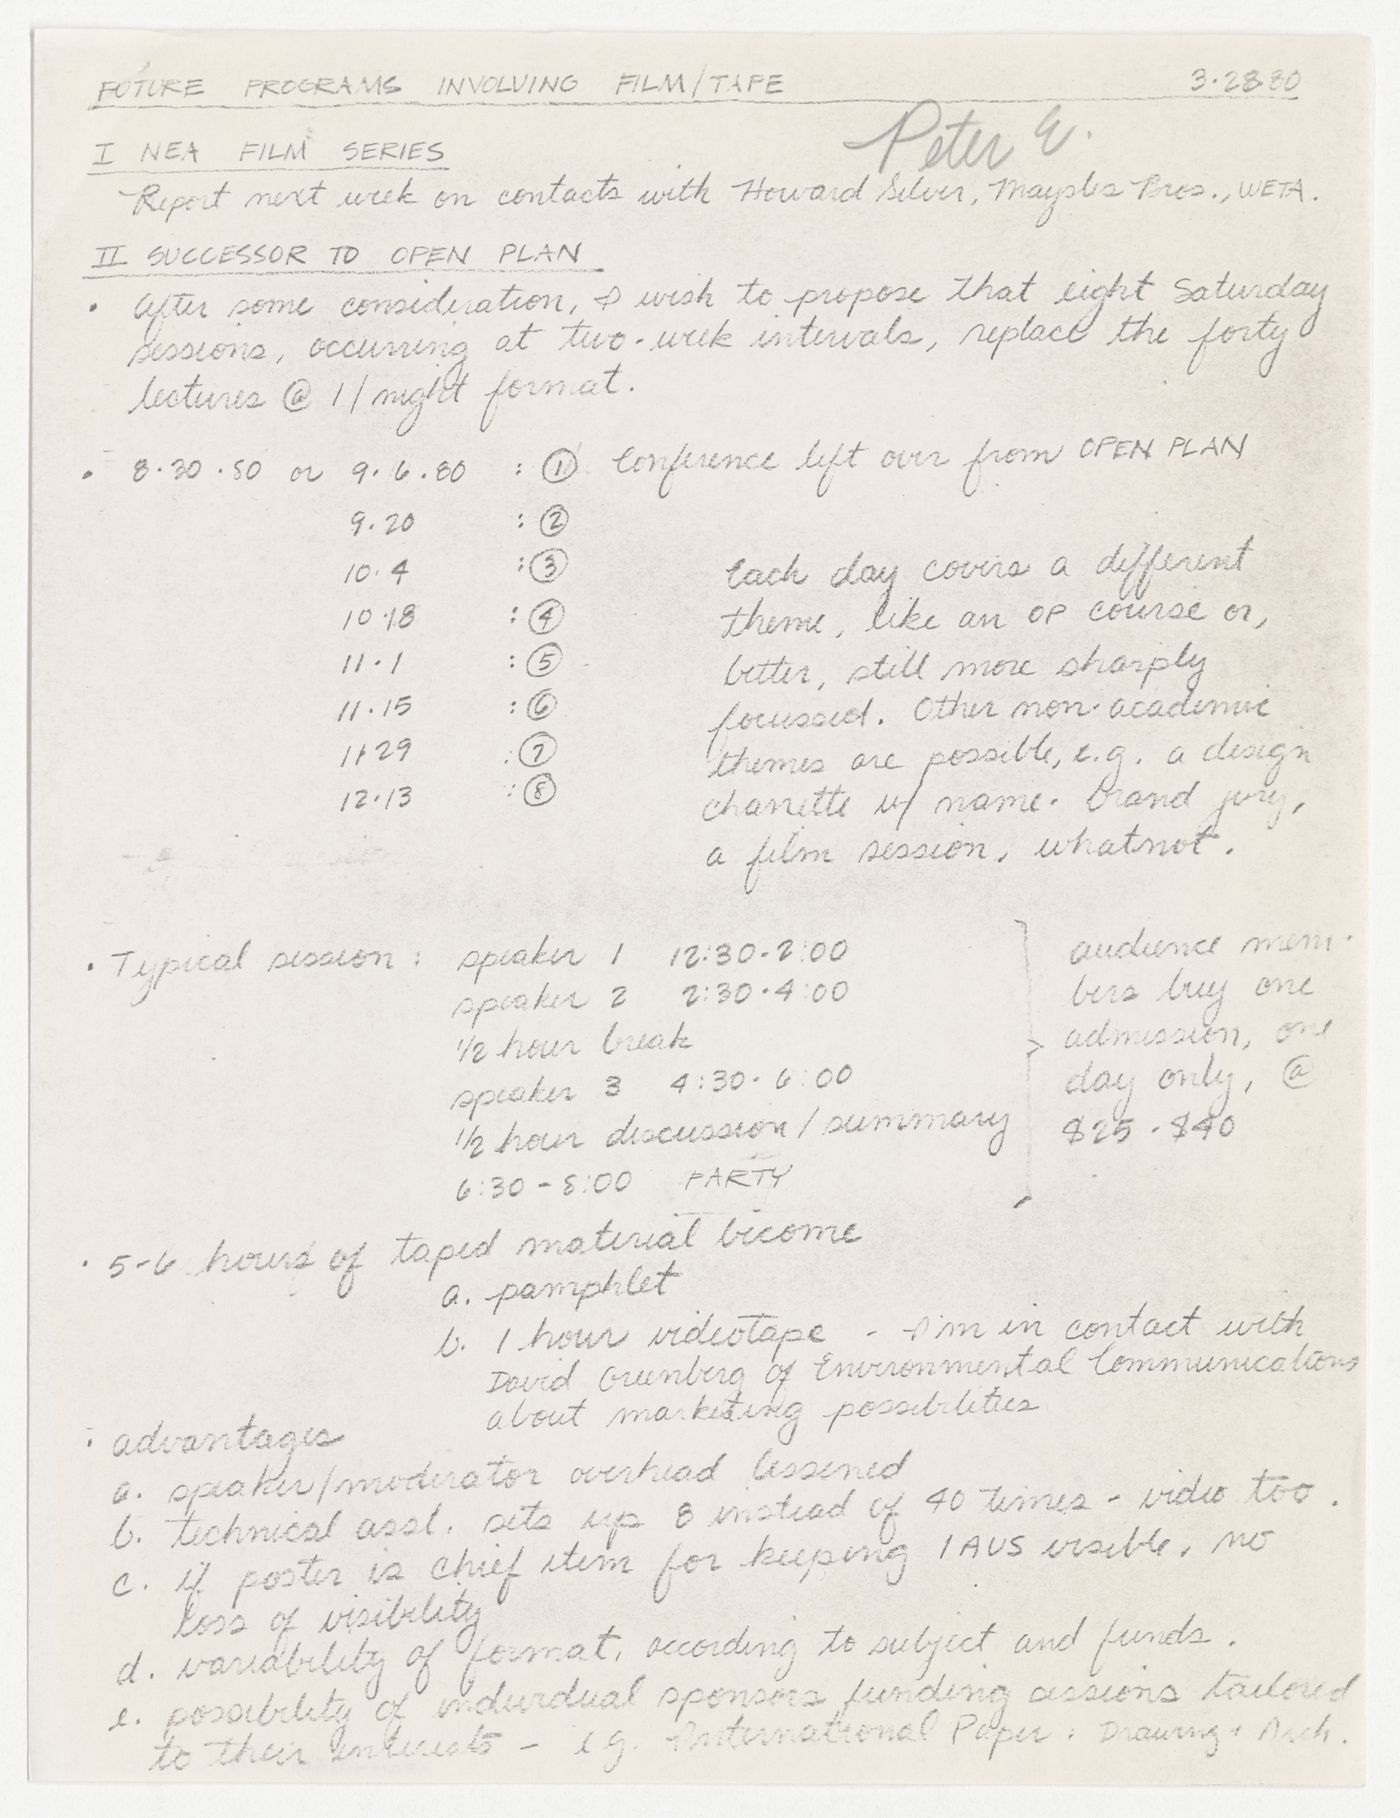 FUTURE PROGRAMS INVOLVING FILM/TAPE 3·28·80
Peter E.
I NEA FILM SERIES
Report next week on contacts with Howard Silver, Maysles Bros., WETA.
II SUCCESSOR TO OPEN PLAN
· After some consideration, I wish to propose that eight Saturday
sessions, occurring at two-week intervals, replace the forty
lectures @ 1/night format.
· 8·30·80 or 9·6·80 : ① Conference left over from OPEN PLAN
9·20 : ②
10·4 : ③
10·18 : ④
11·1 : ⑤
11·15 : ⑥
11·29 : ⑦
12·13 : ⑧
Each day covers a different
theme, like an OP course or,
better, still more sharply
focussed. Other non-academic
themes are possible, e.g. a design
charrette w/ name-brand jury,
a film session, whatnot.
· Typical session : speaker 1 12:30-2:00
speaker 2 2:30-4:00
1/2 hour break
speaker 3 4:30-6:00
1/2 hour discussion / summary
6:30-8:00 PARTY
audience mem-
bers buy one
admission, one
day only, @
$25-$40
· 5-6 hours of taped material become
a. pamphlet
b. 1 hour videotape - I'm in contact with
David Greenberg of Environmental Communications
about marketing possibilities
· advantages
a. speaker/moderator overhead lessened
b. technical asst. sets up 8 instead of 40 times - video too.
c. if poster is chief item for keeping IAUS visible, no
loss of visibility
d. variability of format, according to subject and funds.
e. possibility of individual sponsors funding sessions tailored
to their interests - e.g. International Paper : Drawing + Arch.